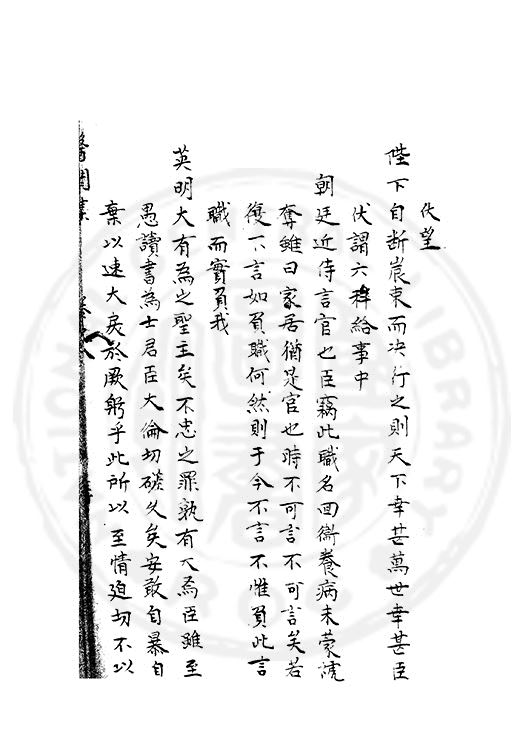 伏望
陛下自断宸衷而决行之則天下幸甚萬世幸甚臣
伏謂六科給事中
朝廷近侍言官也臣竊此職名回衛養病未蒙
奪雖曰家居猶是官也時不可言不可言矣若
復不言如負職何然則于今不言不惟負此言
職而實負我
英明大有為之聖主矣不忠之罪孰有大焉臣雖至
愚讀書為士君臣大倫切磋久矣安敢自暴自
棄以速大戾於厥躬乎此所以至情迫切不以
醫閭